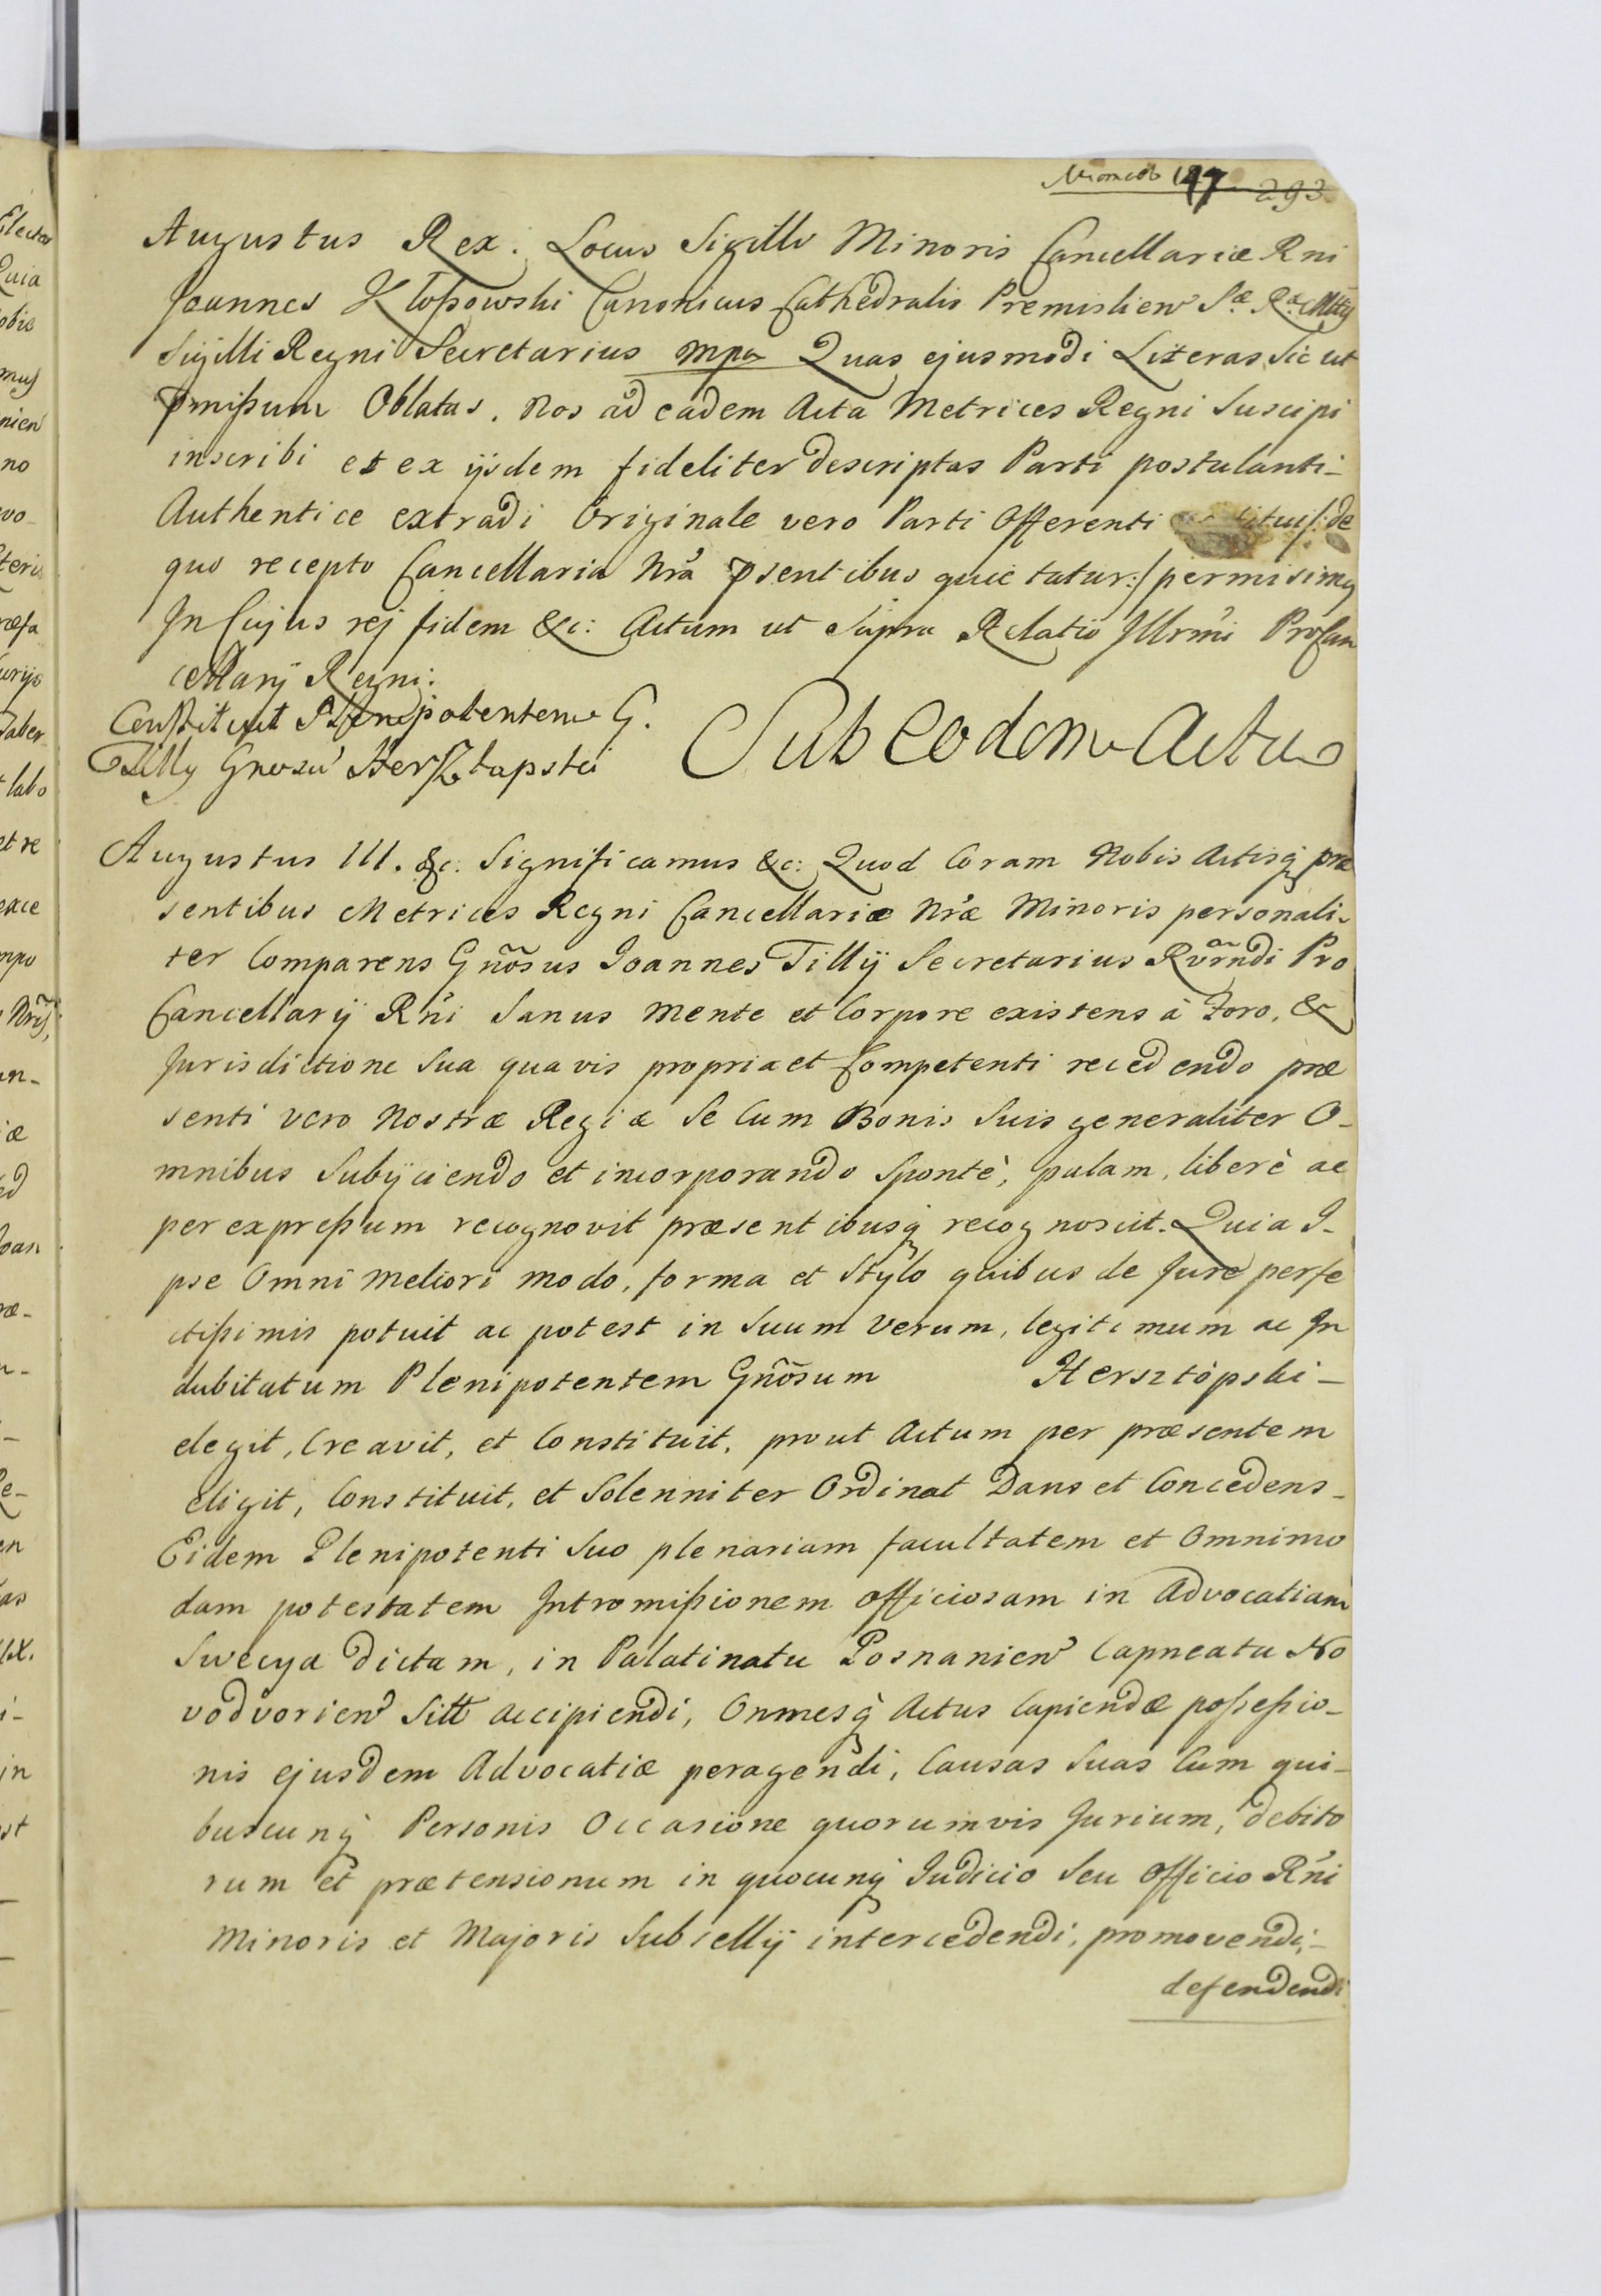 147 293
Augustus Rex. Locus Sigilli Minoris Cancellariæ Rni
Joannes Kłoſsowski Canonicus Cathedralis Premislien Sæ Ræ Mttis
Sigilli Regni Secretarius mpa Quas ejusmodi Literas Sic ut
pmiſsum Oblatas. Nos ad eadem Acta Metrices Regni Suscipi
inscribi et ex ijsdem fideliter descriptas Parti postulanti-
Authentice extradi Originale vero Parti Offerenti /: de
quo recepto Cancellaria Nrã psentibus quietatur :/ permisimq
In Cujus rej fidem &c: Actum ut Supra Relatio Jllrmi ProCan
cellarij Regni:
Constituit Plenipotentem G.
Tilly Gnosũ Herſztopski
Sub eodem Actu
Augustus III. &c. Significamus &c: Quod Coram Nobis Actisq̃ præ
sentibus Metrices Regni Cancellariæ Nræ Minoris personali-
ter Comparens Gnõsus Joannes Tillÿ Secretarius Rvrndi Pro
Cancellarÿ Rñi Sanus Mente et Corpore existens à Foro, &
Jurisdictione Sua quavis propria et Competenti recedendo præ
senti vero Nostræ Regiæ Se Cum Bonis Suis generaliter O-
mnibus Subijciendo et incorporando Spontè, palam, liberè ac
per expreſsum recognovit præsentibusq̃ recognoscit. Quia I-
pse Omni Meliori modo, forma et Stylo quibus de Jure perfe
ctiſsimis potuit ac potest in Suum Verum, legitimum ac In
dubitatum Plenipotentem Gnõsum Hersztòpski-
elegit, Creavit, et Constituit, prout Actum per præsentem
eligit, Constituit, et Solenniter Ordinat Dans et Concedens-
Eidem Plenipotenti Suo plenariam facultatem et Omnimo
dam potestatem Intromiſsionem officiosam in Advocatiam
Swecya dictam, in Palatinatu Posnanien Capneatu No
vodvorien Sitt accipiendi, Onmesq̃ Actus Capiendæ poſseſsio-
nis ejusdem Advocatiæ peragendi, Causas Suas Cum qui-
buscunq̃ Personis Occasione quorumvis Jurium, debito
rum et prætensionum in quocunq̃ Judicio Seu Officio Rñi
Minoris et Majoris Subsellÿ intercedendi, promovendi,-
defendendi